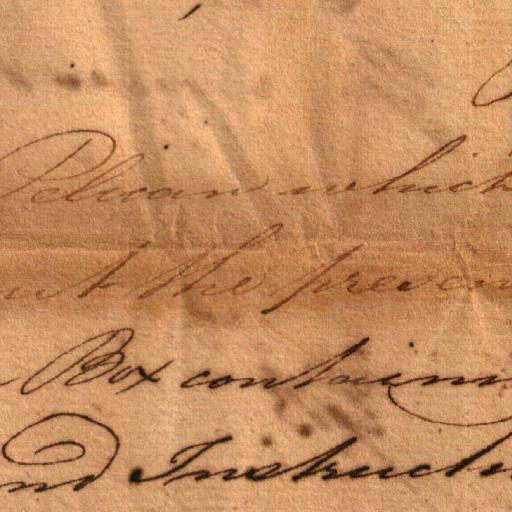 Pelican which
the presen
Box containing
and Instructi